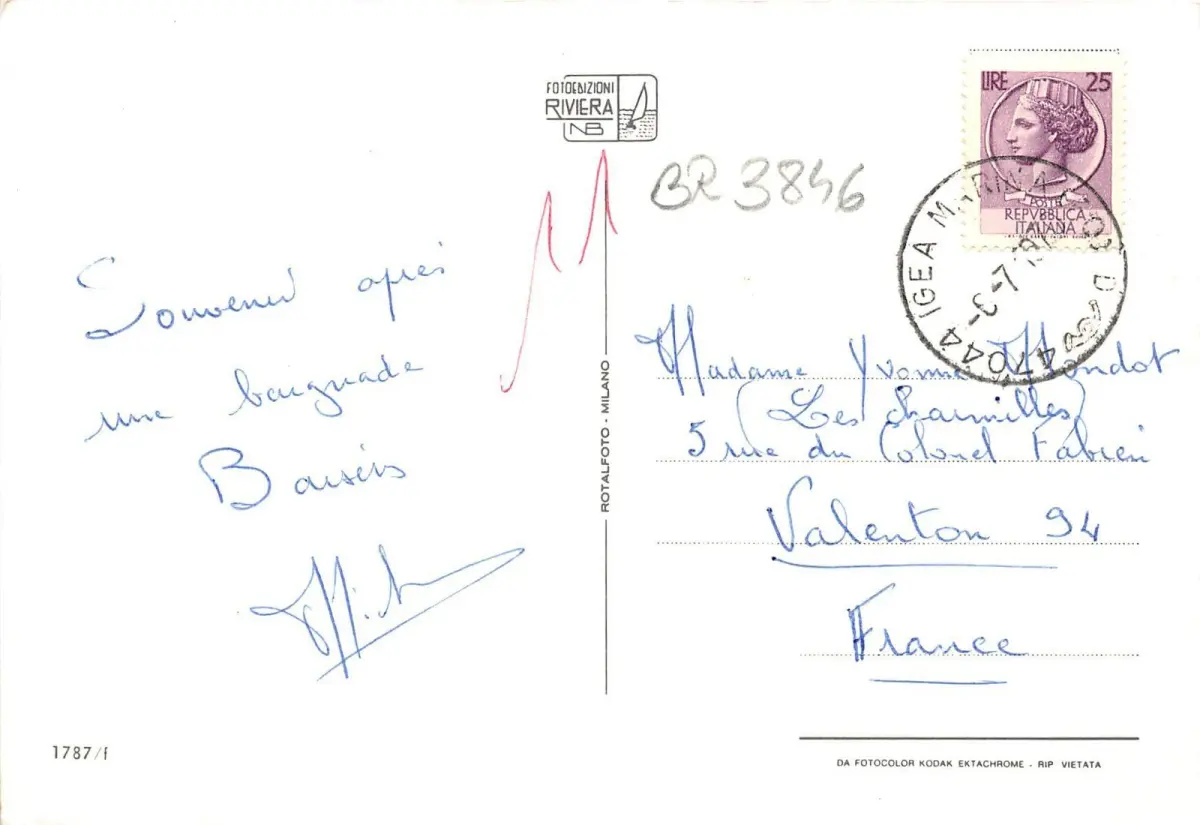 FOTOEDIZIONI
RIVIERA
NB
LIRE 25
POSTE
REPVBBLICA
ITALIANA
47044 IGEA MARINA
-7
BR 3846
Souvenir après
une baignade
Baisers
ROTALFOTO - MILANO
Madame Yvonne Hondot
(Les charmilles)
5 rue du Colonel Fabien
Valenton 94
France
1787/f
DA FOTOCOLOR KODAK EKTACHROME - RIP VIETATA